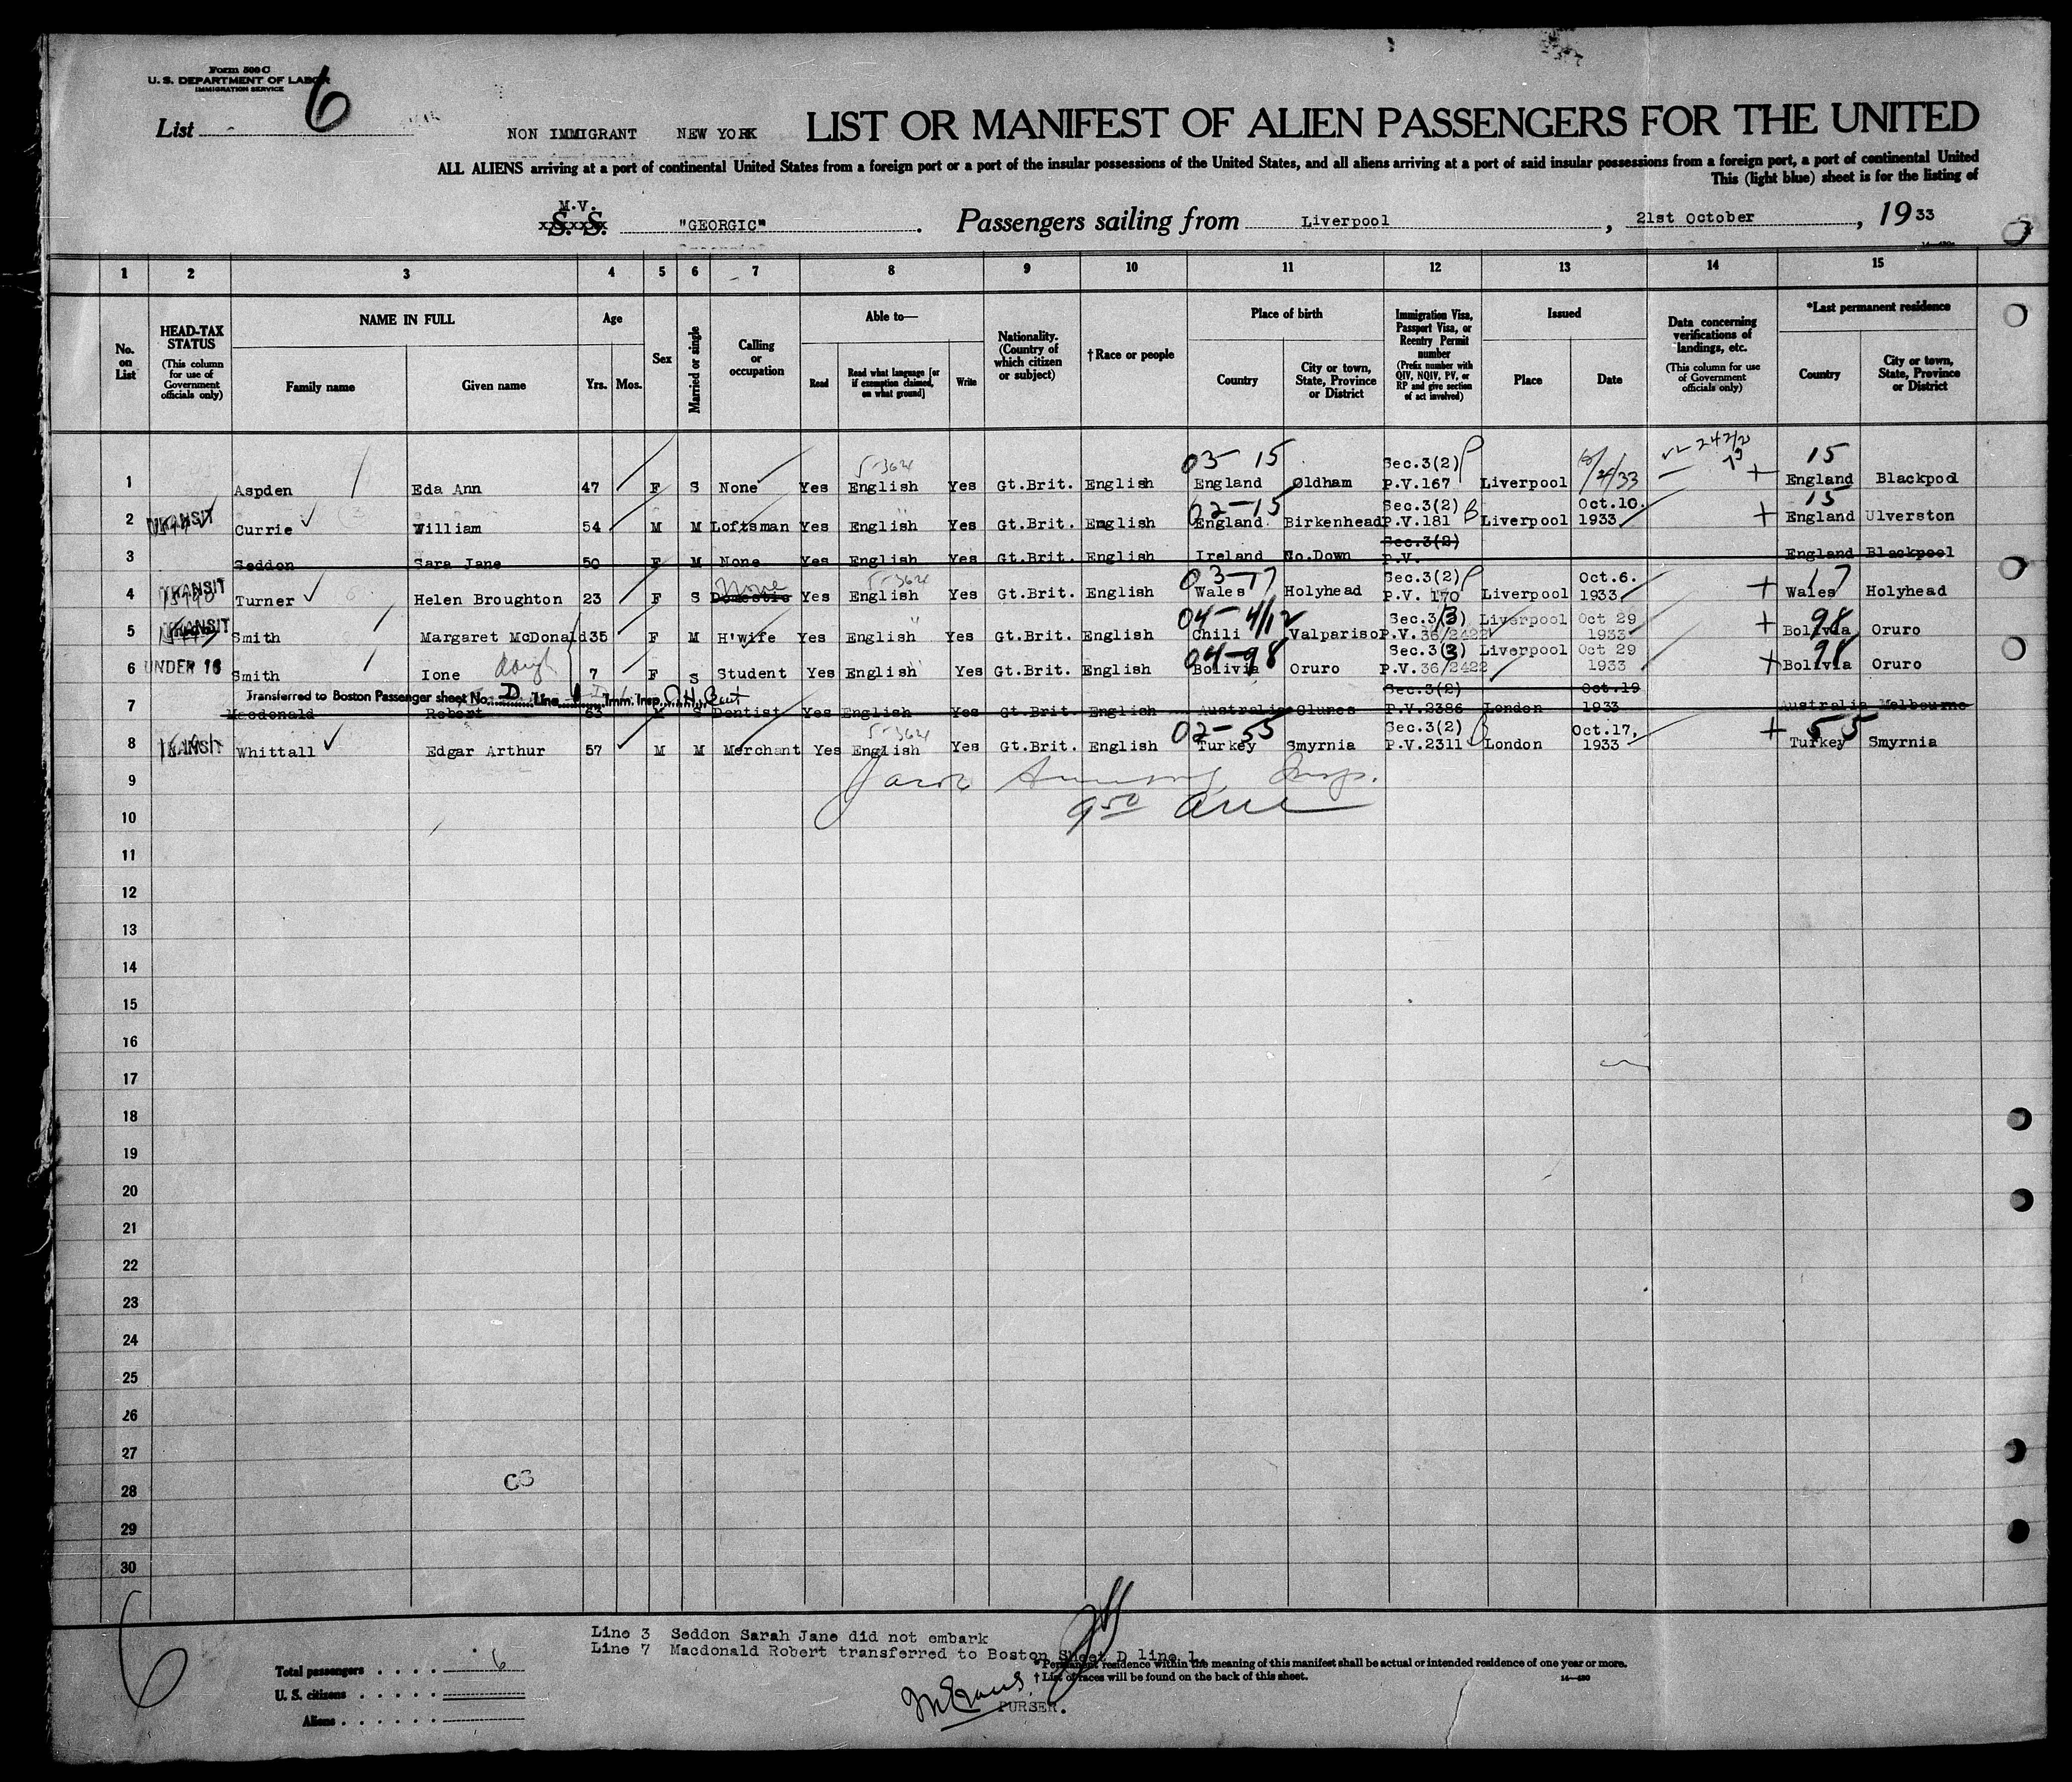 Form 500 C
U. S. DEPARTMENT OF LABOR
IMMIGRATION SERVICE
List 6
NON IMMIGRANT NEW YORK
LIST OR MANIFEST OF ALIEN PASSENGERS FOR THE UNITED
ALL ALIENS arriving at a port of continental United States from a foreign port or a port of the insular possessions of the United States, and all aliens arriving at a port of said insular possessions from a foreign port, a port of continental United
This (light blue) sheet is for the listing of
M.V.
S. S. "GEORGIC". Passengers sailing from Liverpool, 21st October, 1933
1 2 3 4 5 6 7 8 9 10 11 12 13 14 15
No. on List
HEAD-TAX STATUS (This column for use of Government officials only)
NAME IN FULL Family name Given name
Age Yrs. Mos.
Sex
Married or single
Calling or occupation
Able to— Read Read what language [or if exemption claimed, on what ground] Write
Nationality. (Country of which citizen or subject)
†Race or people
Place of birth Country City or town, State, Province or District
Immigration Visa, Passport Visa, or Reentry Permit number (Prefix number with QIV, NQIV, PV, or RP and give section of act involved)
Issued Place Date
Data concerning verifications of landings, etc. (This column for use of Government officials only)
*Last permanent residence Country City or town, State, Province or District
5-364 03-15 Sec.3(2) 15
1 Aspden Eda Ann 47 F S None Yes English Yes Gt.Brit. English England Oldham P.V.167 Liverpool England Blackpool
TRANSIT 02-15 Sec.3(2) Oct.10. 15
2 Currie William 54 M M Loftsman Yes English Yes Gt.Brit. English England Birkenhead P.V.181 Liverpool 1933 England Ulverston
Sec.3(2)
3 Seddon Sara Jane 50 F M None Yes English Yes Gt.Brit. English Ireland No.Down P.V. England Blackpool
TRANSIT None 5-364 03-17 Sec.3(2) Oct.6. 17
4 Turner Helen Broughton 23 F S Domestic Yes English Yes Gt.Brit. English Wales Holyhead P.V. 170 Liverpool 1933 Wales Holyhead
TRANSIT 04-4/12 Sec.3(3) Liverpool Oct 29 98
5 Smith Margaret McDonald 35 F M H'wife Yes English Yes Gt.Brit. English Chili Valpariso P.V.36/2422 1933 Bolivia Oruro
04-98 Sec.3(3) Liverpool Oct 29 98
6 UNDER 16 Smith Ione daugh 7 F S Student Yes English Yes Gt.Brit. English Bolivia Oruro P.V.36/2422 1933 Bolivia Oruro
Transferred to Boston Passenger sheet No. D Line 1 Imm. Insp. Sec.3(2) Oct.19
7 Macdonald Robert 63 M S Dentist Yes English Yes Gt.Brit. English Australia Clunes P.V.2386 London 1933 Australia Melbourne
TRANSIT 5-364 02-55 Sec.3(2) Oct.17, 55
8 Whittall Edgar Arthur 57 M M Merchant Yes English Yes Gt.Brit. English Turkey Smyrnia P.V.2311 London 1933 Turkey Smyrnia
9
10
11
12
13
14
15
16
17
18
19
20
21
22
23
24
25
26
27
28
29
30
6
Line 3 Seddon Sarah Jane did not embark
Line 7 Macdonald Robert transferred to Boston Sheet D line 1.
Total passengers . . . . 6
U. S. citizens . . . . .
Aliens . . . . . .
*Permanent residence within the meaning of this manifest shall be actual or intended residence of one year or more.
†List of races will be found on the back of this sheet.
PURSER.